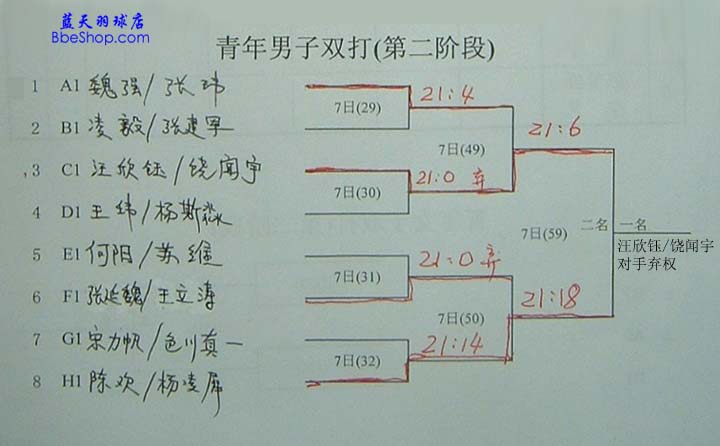 蓝天羽球店
BbeShop.com
青年男子双打(第二阶段)
1 A1 魏强/张玮
7日(29)
21:4
2 B1 凌毅/张建军
7日(49)
21:6
3 C1 汪欣钰/饶闻宇
7日(30)
21:0 弃
4 D1 王纬/杨斯淼
7日(59)
二名 一名
汪欣钰/饶闻宇
对手弃权
5 E1 何阳/苏维
7日(31)
21:0 弃
6 F1 张延魏/王立涛
7日(50)
21:18
7 G1 宋力帆/色川真一
7日(32)
21:14
8 H1 陈欢/杨凌犀